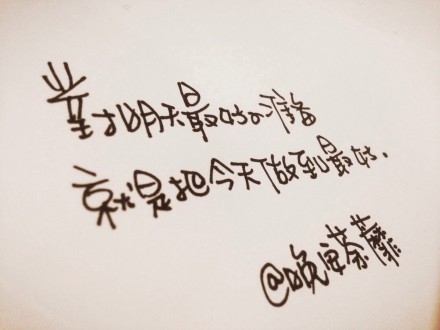 对明天最好的准备
就是把今天做到最好.
@晚安荼蘼